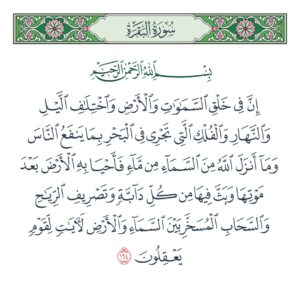 سُورَةُ البَقَرَةِ
بِسْمِ اللَّهِ الرَّحْمَٰنِ الرَّحِيمِ
إِنَّ فِي خَلْقِ ٱلسَّمَٰوَٰتِ وَٱلْأَرْضِ وَٱخْتِلَٰفِ ٱلَّيْلِ
وَٱلنَّهَارِ وَٱلْفُلْكِ ٱلَّتِي تَجْرِي فِي ٱلْبَحْرِ بِمَا يَنفَعُ ٱلنَّاسَ
وَمَآ أَنزَلَ ٱللَّهُ مِنَ ٱلسَّمَآءِ مِن مَّآءٍ فَأَحْيَا بِهِ ٱلْأَرْضَ بَعْدَ
مَوْتِهَا وَبَثَّ فِيهَا مِن كُلِّ دَآبَّةٍ وَتَصْرِيفِ ٱلرِّيَٰحِ
وَٱلسَّحَابِ ٱلْمُسَخَّرِ بَيْنَ ٱلسَّمَآءِ وَٱلْأَرْضِ لَأٓيَٰتٍ لِّقَوْمٍ
يَعْقِلُونَ ١٦٤